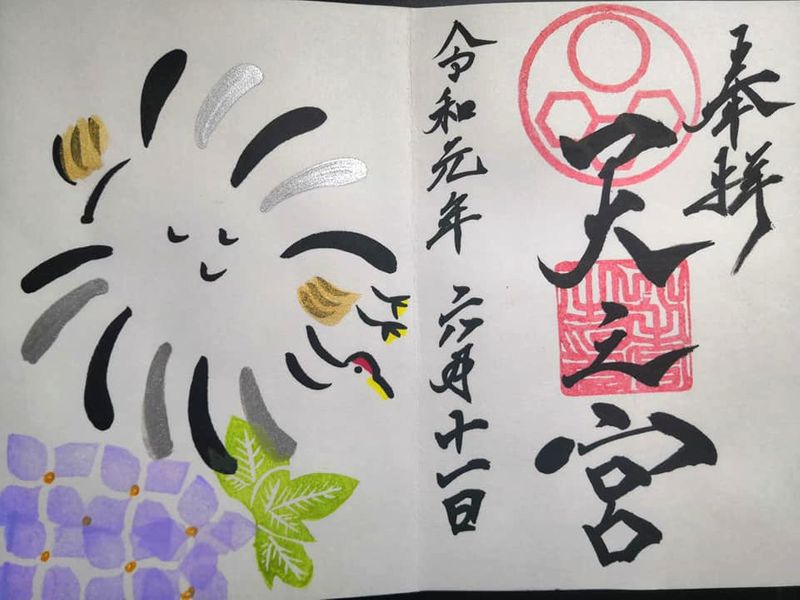 奉拝
天之宮
令和元年 六月十一日